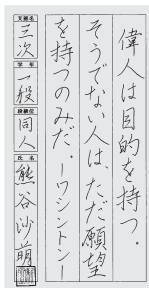 偉人は目的を持つ。
そうでない人は、ただ願望
を持つのみだ。ーワシントンー
支部名
三次
学年
一般
段級位
同人
氏名
熊谷沙萌